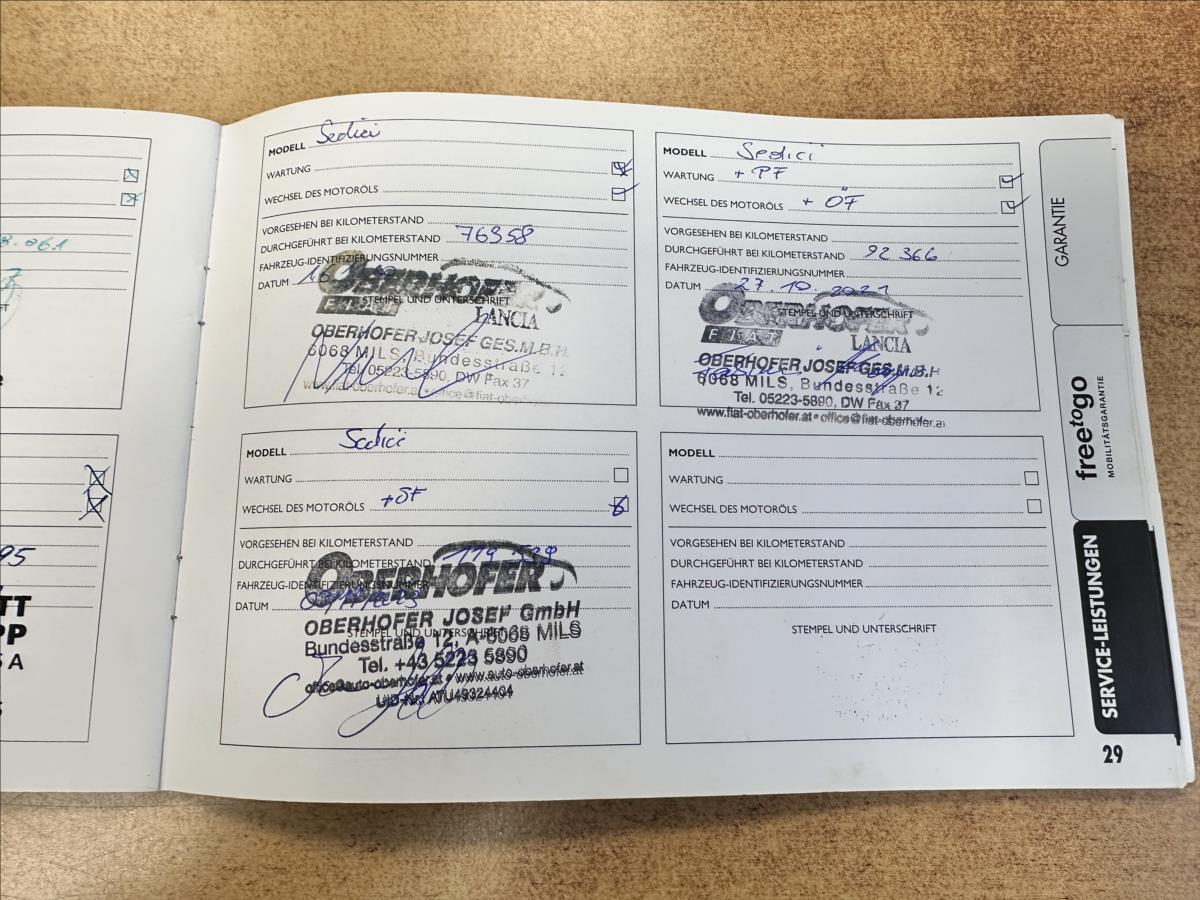 MODELL Sedici
WARTUNG
WECHSEL DES MOTORÖLS
VORGESEHEN BEI KILOMETERSTAND
DURCHGEFÜHRT BEI KILOMETERSTAND 76958
FAHRZEUG-IDENTIFIZIERUNGSNUMMER
DATUM 16
STEMPEL UND UNTERSCHRIFT
OBERHOFER
FIAT LANCIA
OBERHOFER JOSEF GES.M.B.H.
6068 MILS, Bundesstraße 12
Tel. 05223-5890, DW Fax 37
www.fiat-oberhofer.at • office@fiat-oberhofer
MODELL Sedici
WARTUNG + PF
WECHSEL DES MOTORÖLS + ÖF
VORGESEHEN BEI KILOMETERSTAND
DURCHGEFÜHRT BEI KILOMETERSTAND 92 366
FAHRZEUG-IDENTIFIZIERUNGSNUMMER
DATUM 27. 10. 2021
STEMPEL UND UNTERSCHRIFT
OBERHOFER
FIAT LANCIA
OBERHOFER JOSEF GES.M.B.H
6068 MILS, Bundesstraße 12
Tel. 05223-5890, DW Fax 37
www.fiat-oberhofer.at • office@fiat-oberhofer.at
MODELL Sedici
WARTUNG
WECHSEL DES MOTORÖLS +ÖF
VORGESEHEN BEI KILOMETERSTAND
DURCHGEFÜHRT BEI KILOMETERSTAND
FAHRZEUG-IDENTIFIZIERUNGSNUMMER
DATUM
STEMPEL UND UNTERSCHRIFT
OBERHOFER
OBERHOFER JOSEF GmbH
Bundesstraße 12, A-6068 MILS
Tel. +43 5223 5890
office@auto-oberhofer.at • www.auto-oberhofer.at
UID-Nr.: ATU49324404
MODELL
WARTUNG
WECHSEL DES MOTORÖLS
VORGESEHEN BEI KILOMETERSTAND
DURCHGEFÜHRT BEI KILOMETERSTAND
FAHRZEUG-IDENTIFIZIERUNGSNUMMER
DATUM
STEMPEL UND UNTERSCHRIFT
GARANTIE
freetogo
MOBILITÄTSGARANTIE
SERVICE-LEISTUNGEN
29